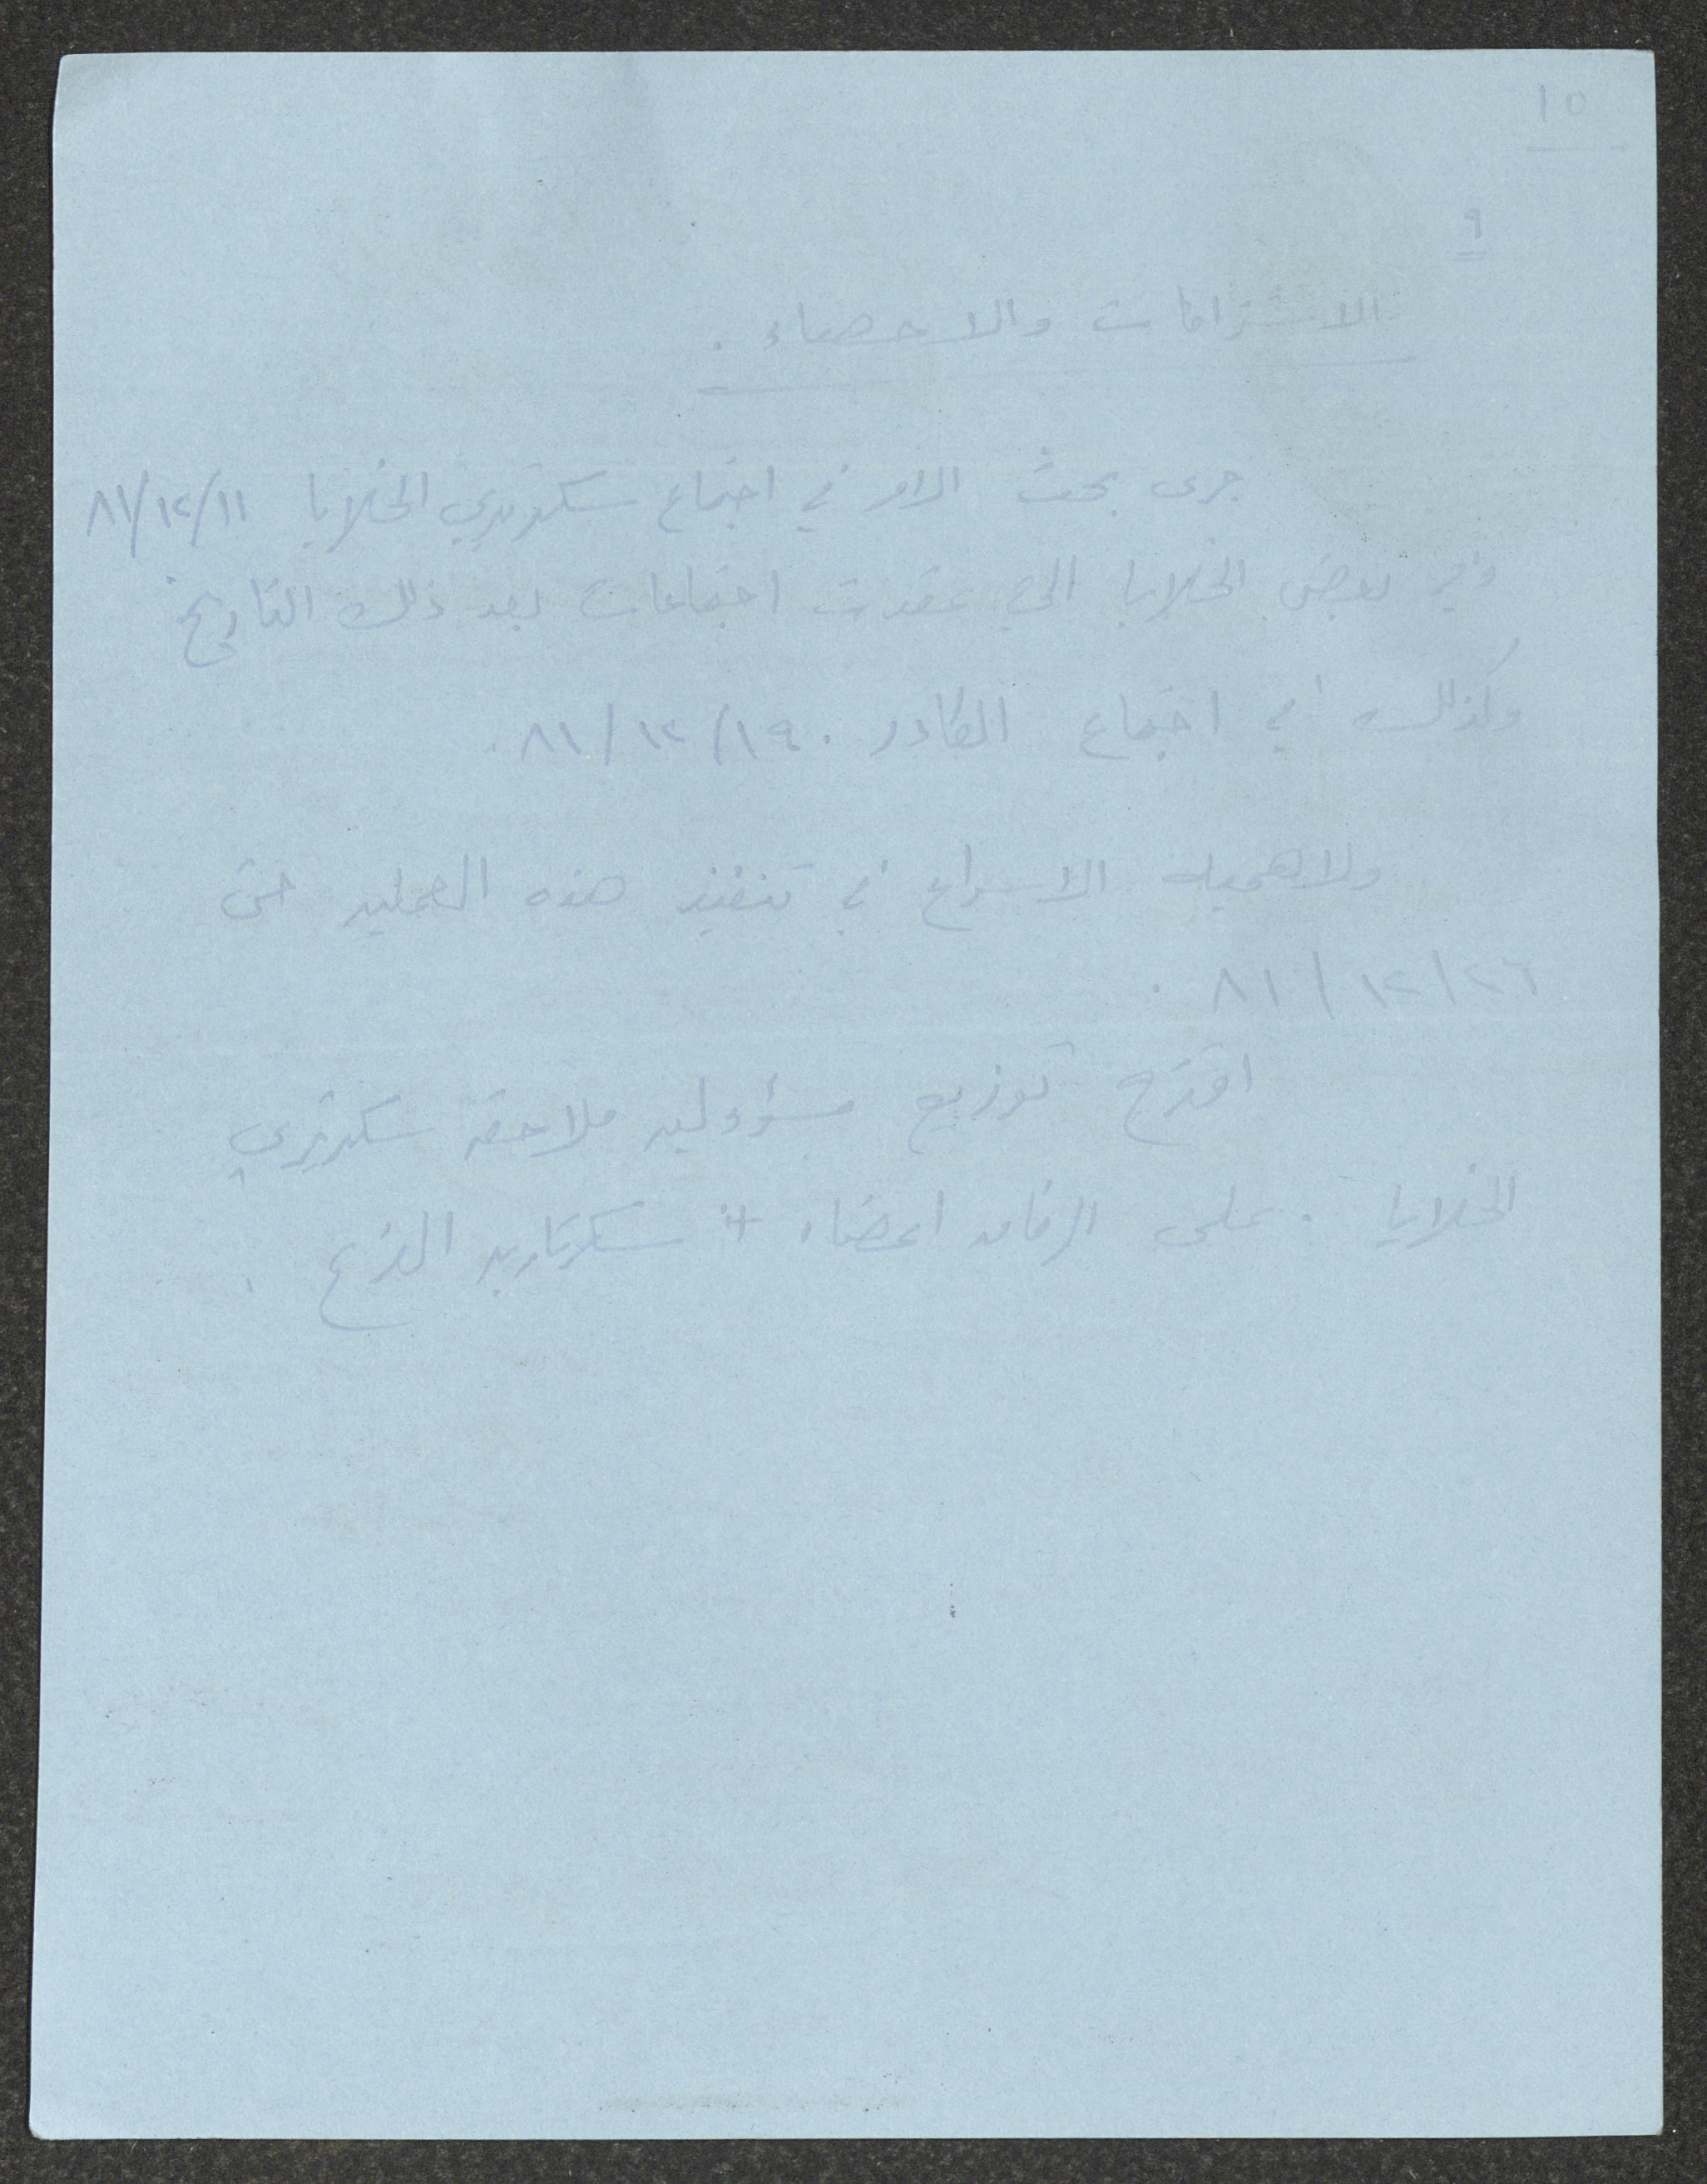 ١٥
٩
الاشتراكات والاحصاء .
جرى بحث الامر في اجتماع سكرتيري الخلايا ٨١/١٢/١١
وفي بعض الخلايا التي عقدت اجتماعات بعد ذلك التاريخ .
وكذلك في اجتماع الكادر . ٨١/١٢/١٩ .
ولاهمية الاسراع في تنفيذ هذه العملية حتى
٨١/١٢/٢٦ .
اقترح توزيع مسؤولية ملاحقة سكرتيري
الخلايا . على الرفاق اعضاء + سكرتارية الفرع .